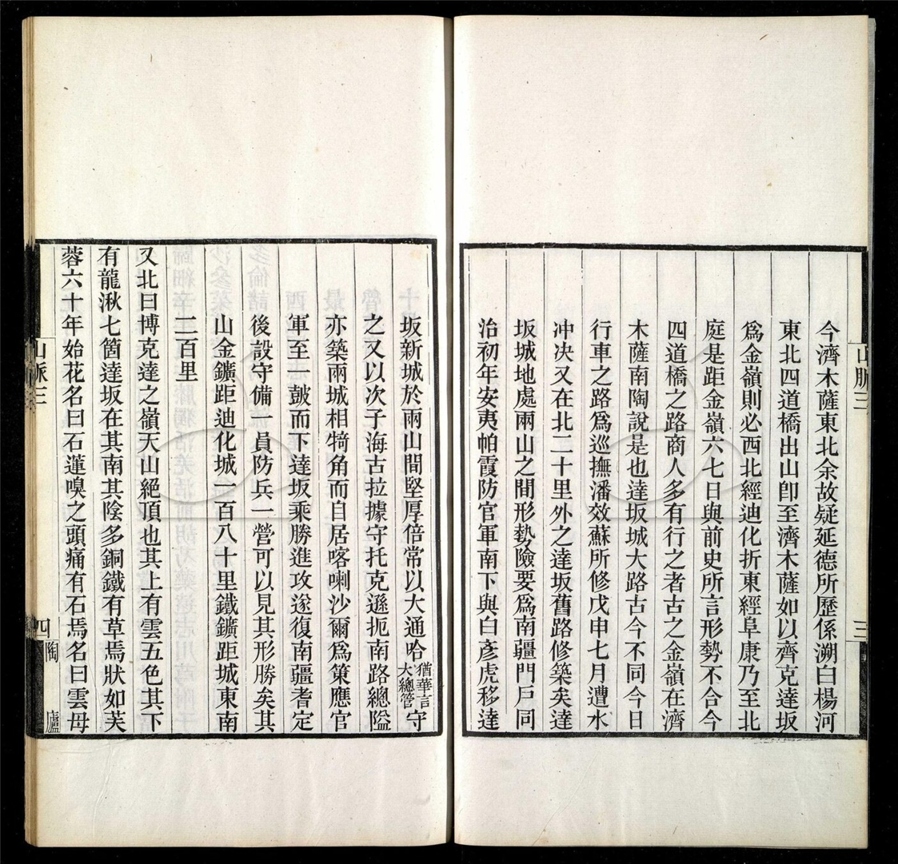 今濟木薩東北余故疑延德所歷係溯白楊河
東北四道橋出山卽至濟木薩如以齊克達坂
爲金嶺則必西北經迪化折東經阜康乃至北
庭是距金嶺六七日與前史所言形勢不合今
四道橋之路商人多有行之者古之金嶺在濟
木薩南陶說是也達坂城大路古今不同今日
行車之路爲巡撫潘效蘇所修戊申七月遭水
冲决又在北二十里外之達坂舊路修築矣達
坂城地處兩山之間形勢險要爲南疆門戶同
治初年安夷帕霞防官軍南下與白彥虎移達
山脈三
三
坂新城於兩山間堅厚倍常以大通哈猶華言大總管守
之又以次子海古拉據守托克遜扼南路總隘
亦築兩城相犄角而自居喀喇沙爾爲策應官
軍至一皷而下達坂乘勝進攻遂復南疆耆定
後設守備一員防兵一營可以見其形勝矣其
山金鑛距迪化城一百八十里鐵鑛距城東南
二百里
又北曰博克達之嶺天山絕頂也其上有雲五色其下
有龍湫七箇達坂在其南其陰多銅鐵有草焉狀如芙
蓉六十年始花名曰石蓮嗅之頭痛有石焉名曰雲母
山脈三
四
陶廬